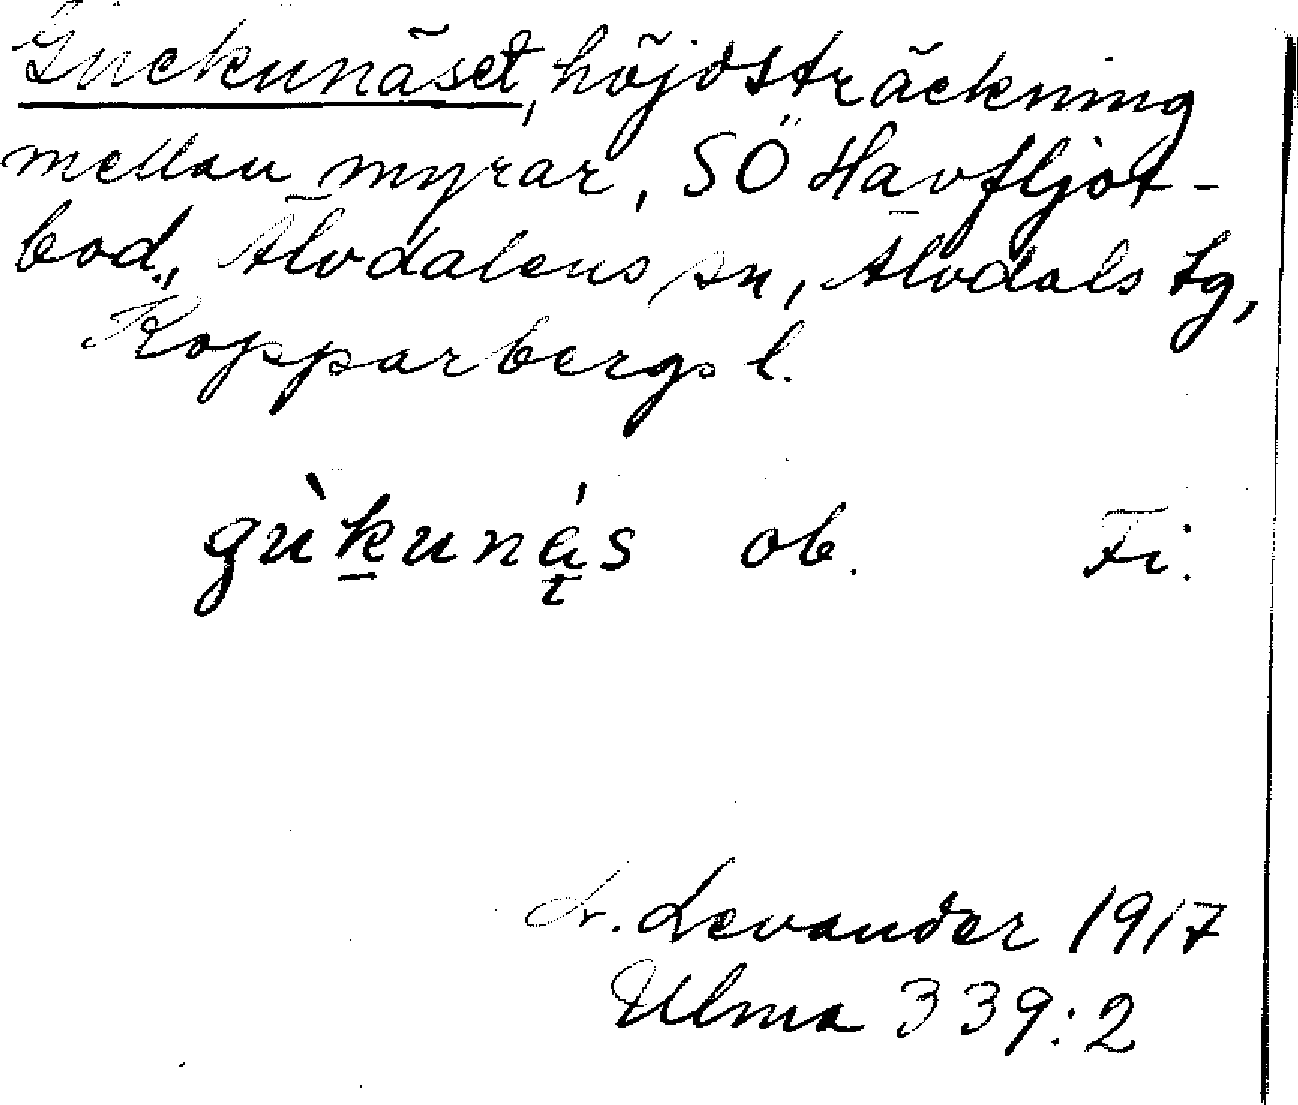 Guckunäset, höjdsträckning
mellan myrar, SÖ Havfljot-
bod., Älvdalens sn, Älvdals tg,
Kopparbergs l.
gùkunä́s ob. Fi.
L. Levander 1917
Ulma 339:2